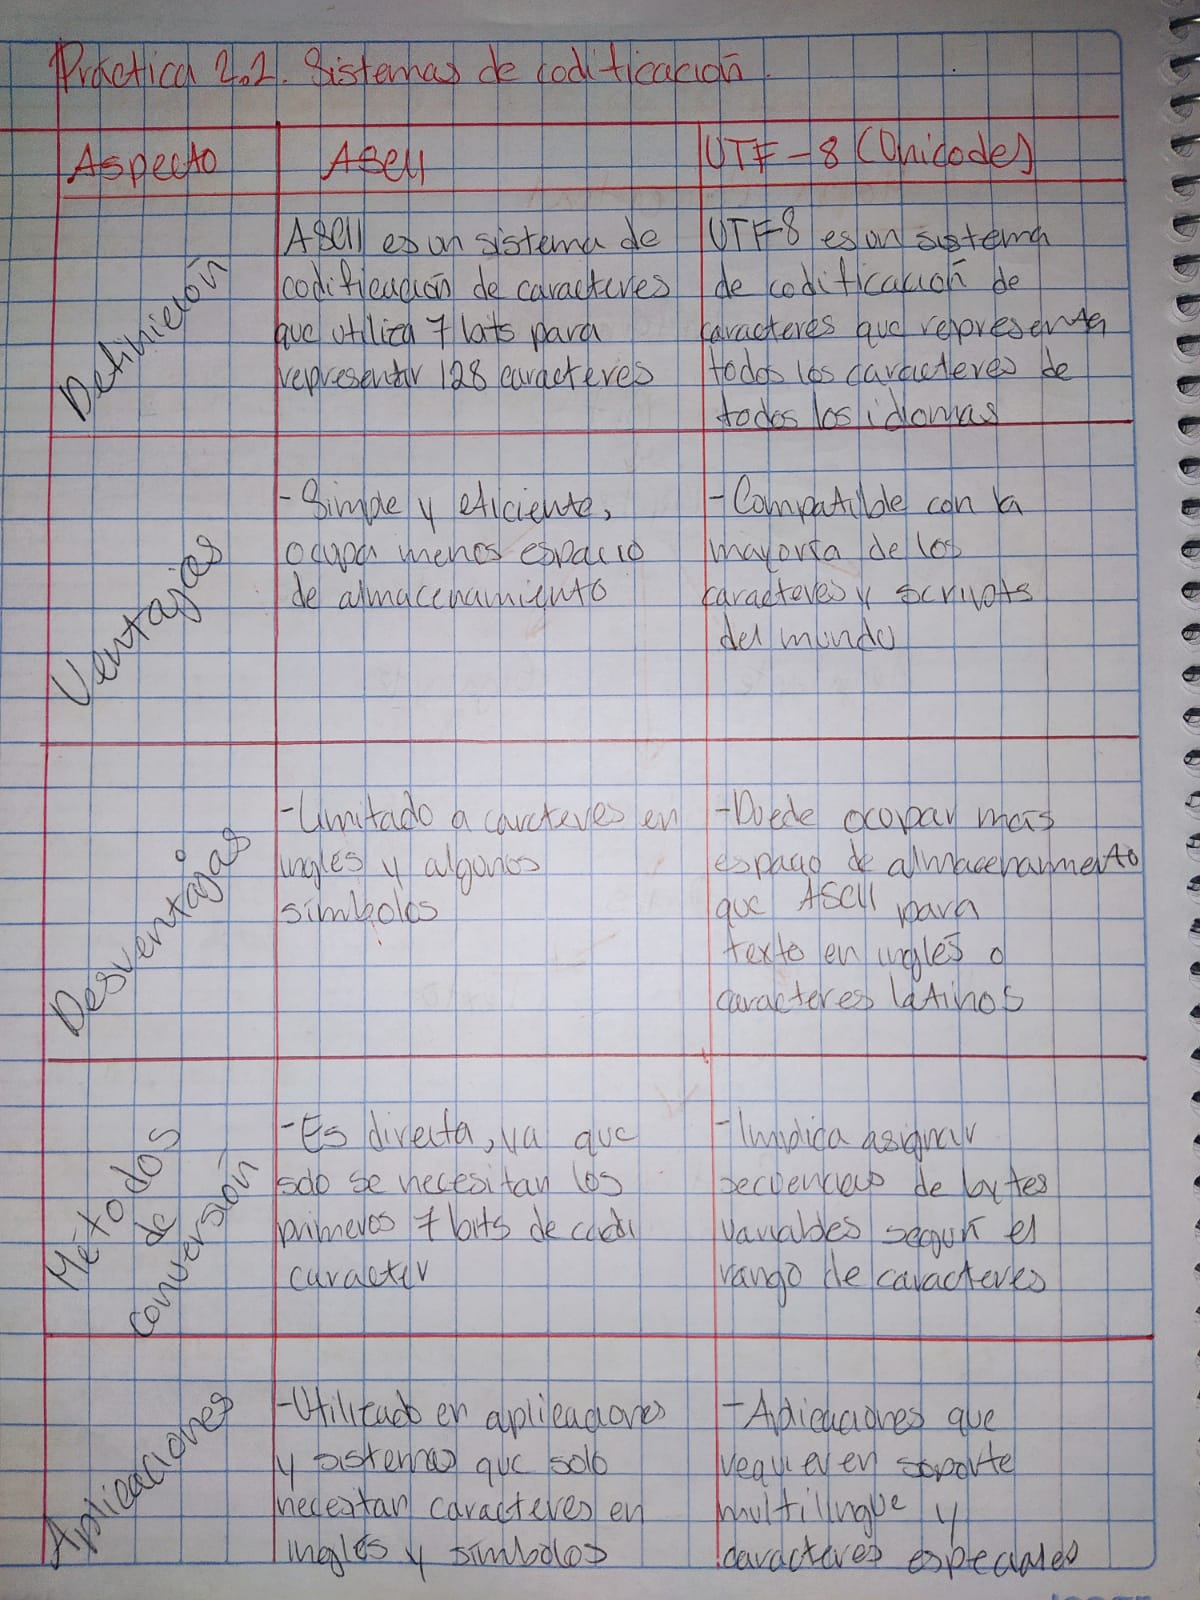 Práctica 2.2. Sistemas de codificación.
Aspecto
ASCII
UTF-8 (Unicodes)
Definición
ASCII es un sistema de
codificación de caracteres
que utiliza 7 bits para
representar 128 caracteres
UTF8 es un sistema
de codificación de
caracteres que representa
todos los caracteres de
todos los idiomas
Ventajas
- Simple y eficiente,
ocupa menos espacio
de almacenamiento
- Compatible con la
mayoría de los
caracteres y scripts
del mundo
Desventajas
- Limitado a carcteres en
ingles y algunos
símbolos
- Puede ocupar más
espacio de almacenamiento
que ASCII para
texto en inglés o
caracteres latinos
Métodos
de
conversión
- Es directa, ya que
solo se necesitan los
primeros 7 bits de cada
caracter
- Implica asignar
secuencias de bytes
variables según el
rango de caracteres
Aplicaciones
- Utilizado en aplicaciones
y sistemas que solo
necesitan caracteres en
ingles y símbolos
- Aplicaciones que
requieren soporte
multilingue y
caracteres especiales